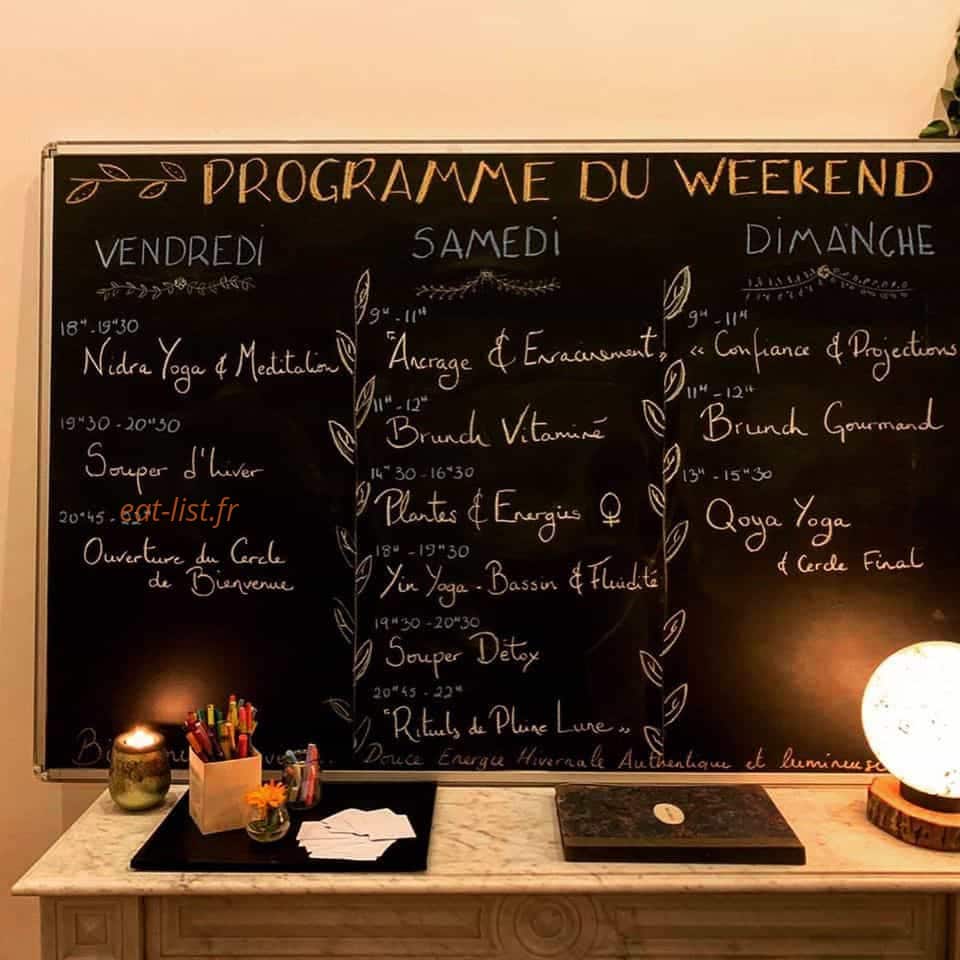 PROGRAMME DU WEEKEND
VENDREDI
18H-19H30
Nidra Yoga & Meditation
19H30-20H30
Souper d'hiver
20H45-22H
eat-list.fr
Ouverture du Cercle
de Bienvenue
SAMEDI
9H-11H
"Ancrage & Enracinement"
11H-12H
Brunch Vitaminé
14H30-16H30
Plantes & Energies ♀
18H-19H30
Yin Yoga - Bassin & Fluidité
19H30-20H30
Souper Détox
20H45-22H
"Rituels de Pleine Lune"
DIMANCHE
9H-11H
« Confiance & Projections
11H-12H
Brunch Gourmand
13H-15H30
Qoya Yoga
& Cercle Final
Douce Energie Hivernale Authentique et lumineuse